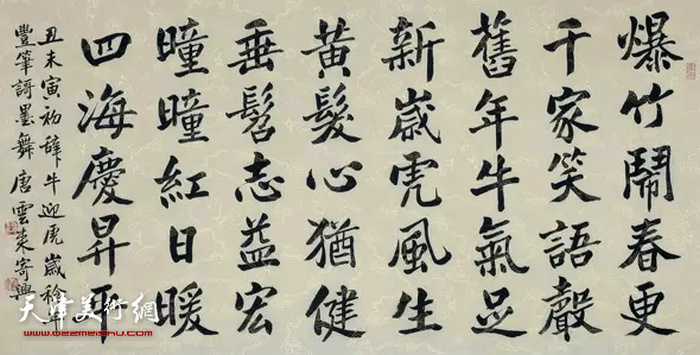 爆竹鬧春更
千家笑語聲
舊年牛氣足
新歲虎風生
黃髮心猶健
垂髫志益宏
曈曈紅日暖
四海慶昇平
丑末寅初辭牛迎虎歲稔年
豐筆謌墨舞唐雲來寄興
天津美術網
www.022meishu.com